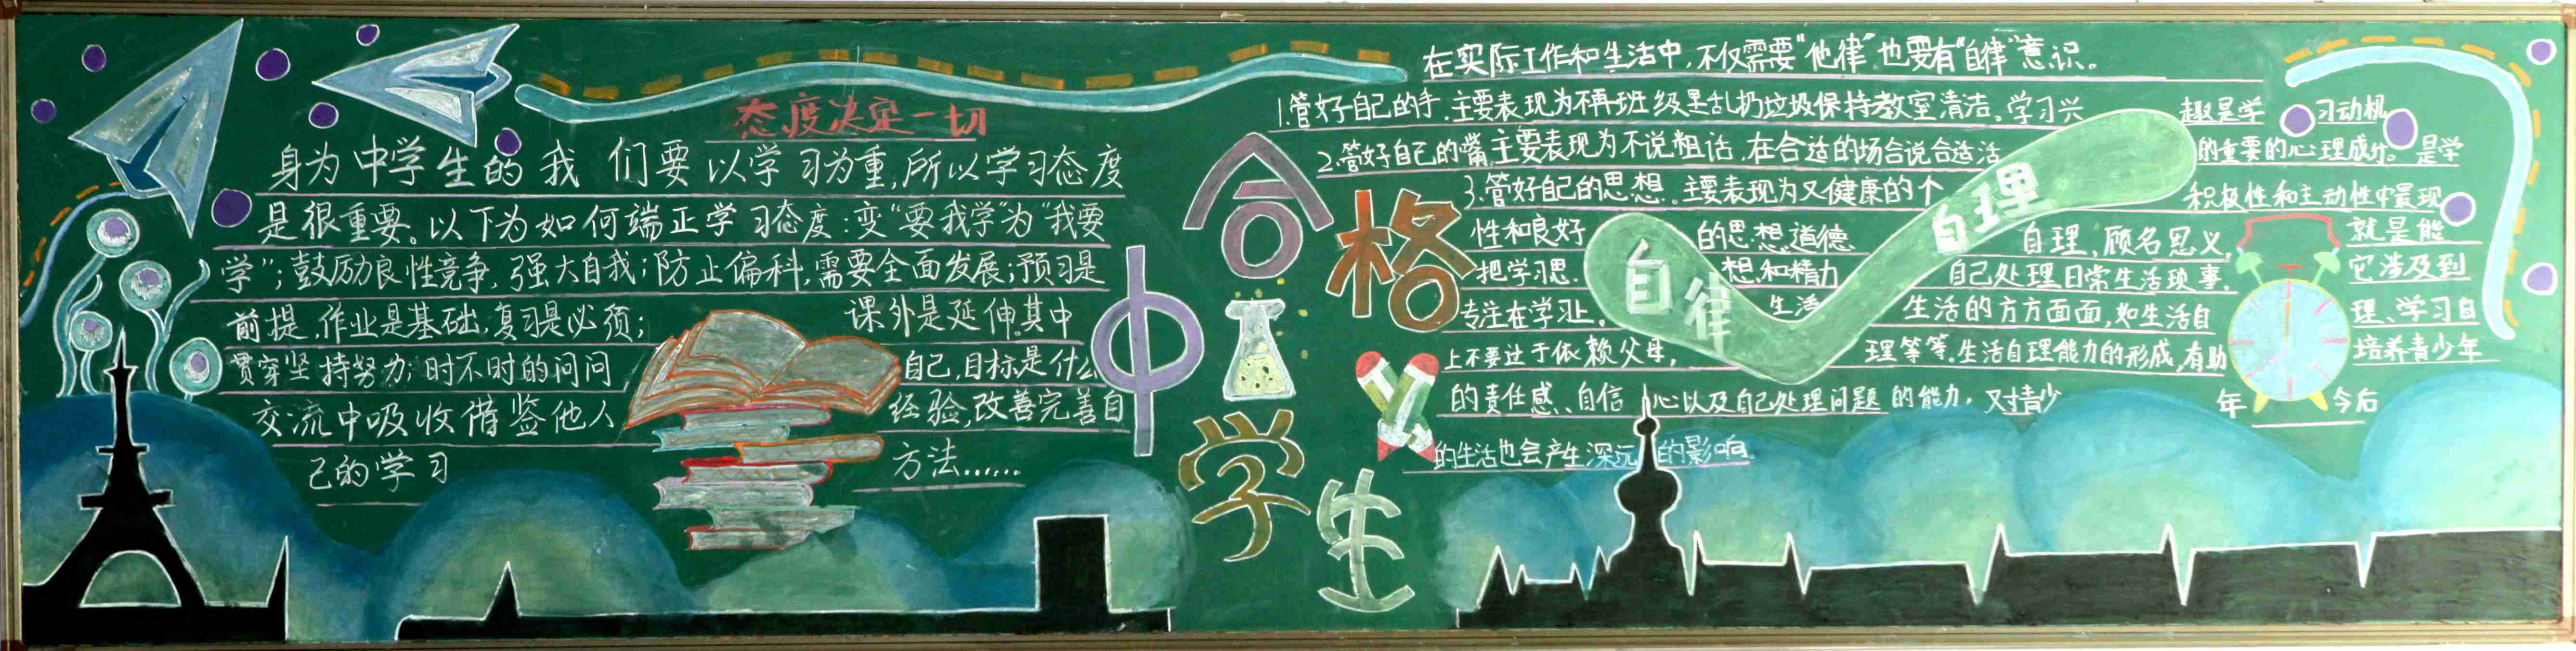 态度决定一切
身为中学生的我们要以学习为重,所以学习态度
是很重要。以下为如何端正学习态度:变“要我学”为“我要
学”;鼓励良性竞争,强大自我;防止偏科,需要全面发展;预习是
前提,作业是基础,复习是必须;课外是延伸。其中
贯穿坚持努力;时不时的问问自己,目标是什么
交流中吸收借鉴他人经验,改善完善自
己的学习方法……
合格
中学生
在实际工作和生活中,不仅需要“他律”也要有“自律”意识。
1.管好自己的手.主要表现为不再班级里乱扔垃圾保持教室清洁。学习兴趣是学习动机
2.管好自己的嘴.主要表现为不说粗话,在合适的场合说合适活的重要的心理成分。是学
3.管好自己的思想。主要表现为又健康的个积极性和主动性中最现
性和良好的思想道德
把学习思.想和精力
专注在学习上.生活
上不要过于依赖父母,
自律
自理
自理,顾名思义,就是能
自己处理日常生活琐事.它涉及到
生活的方方面面,如生活自理、学习自
理等等.生活自理能力的形成,有助培养青少年
的责任感、自信心以及自己处理问题的能力,对青少年今后
的生活也会产生深远的影响